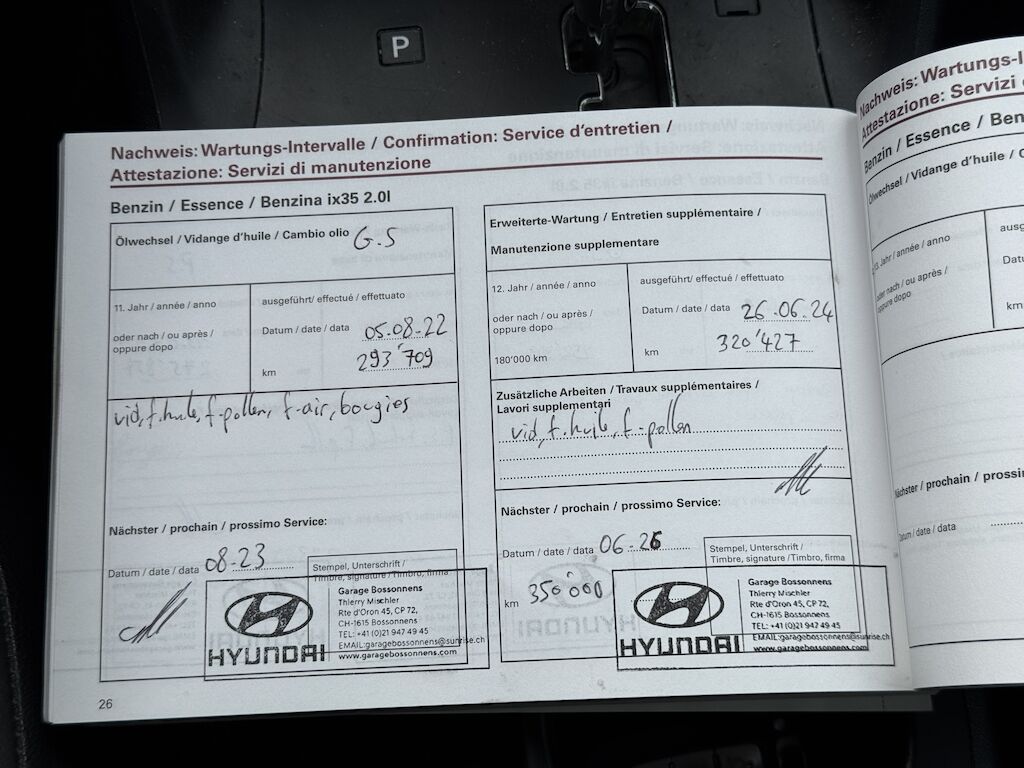 P
Nachweis: Wartungs-Intervalle / Confirmation: Service d'entretien /
Attestazione: Servizi di manutenzione
Benzin / Essence / Benzina ix35 2.0l
Ölwechsel / Vidange d'huile / Cambio olio G.S
11. Jahr / année / anno
oder nach / ou après /
oppure dopo
ausgeführt/ effectué / effettuato
Datum / date / data 05.08.22
km 293'709
vid, f.huile, f-pollen, f-air, bougies
Nächster / prochain / prossimo Service:
Datum / date / data 08-23
Stempel, Unterschrift /
Timbre, signature / Timbro, firma
HYUNDAI
Garage Bossonnens
Thierry Mischler
Rte d'Oron 45, CP 72,
CH-1615 Bossonnens
TEL: +41 (0)21 947 49 45
EMAIL:garagebossonnens@sunrise.ch
www.garagebossonnens.com
26
Erweiterte-Wartung / Entretien supplémentaire /
Manutenzione supplementare
12. Jahr / année / anno
oder nach / ou après /
oppure dopo
180'000 km
ausgeführt/ effectué / effettuato
Datum / date / data 26.06.24
km 320'427
Zusätzliche Arbeiten / Travaux supplémentaires /
Lavori supplementari
vid, f.huile, f-pollen
Nächster / prochain / prossimo Service:
Datum / date / data 06-26
km 350'000
Stempel, Unterschrift /
Timbre, signature /Timbro, firma
HYUNDAI
Garage Bossonnens
Thierry Mischler
Rte d'Oron 45, CP 72,
CH-1615 Bossonnens
TEL: +41 (0)21 947 49 45
EMAIL:garagebossonnens@sunrise.ch
www.garagebossonnens.com
Nachweis: Wartungs-I
Attestazione: Servizi
Benzin / Essence / Ben
Ölwechsel / Vidange d'huile / C
Jahr / année / anno
oder nach / ou après /
oppure dopo
ausg
Datu
km
Nächster / prochain / prossi
Datum / date / data